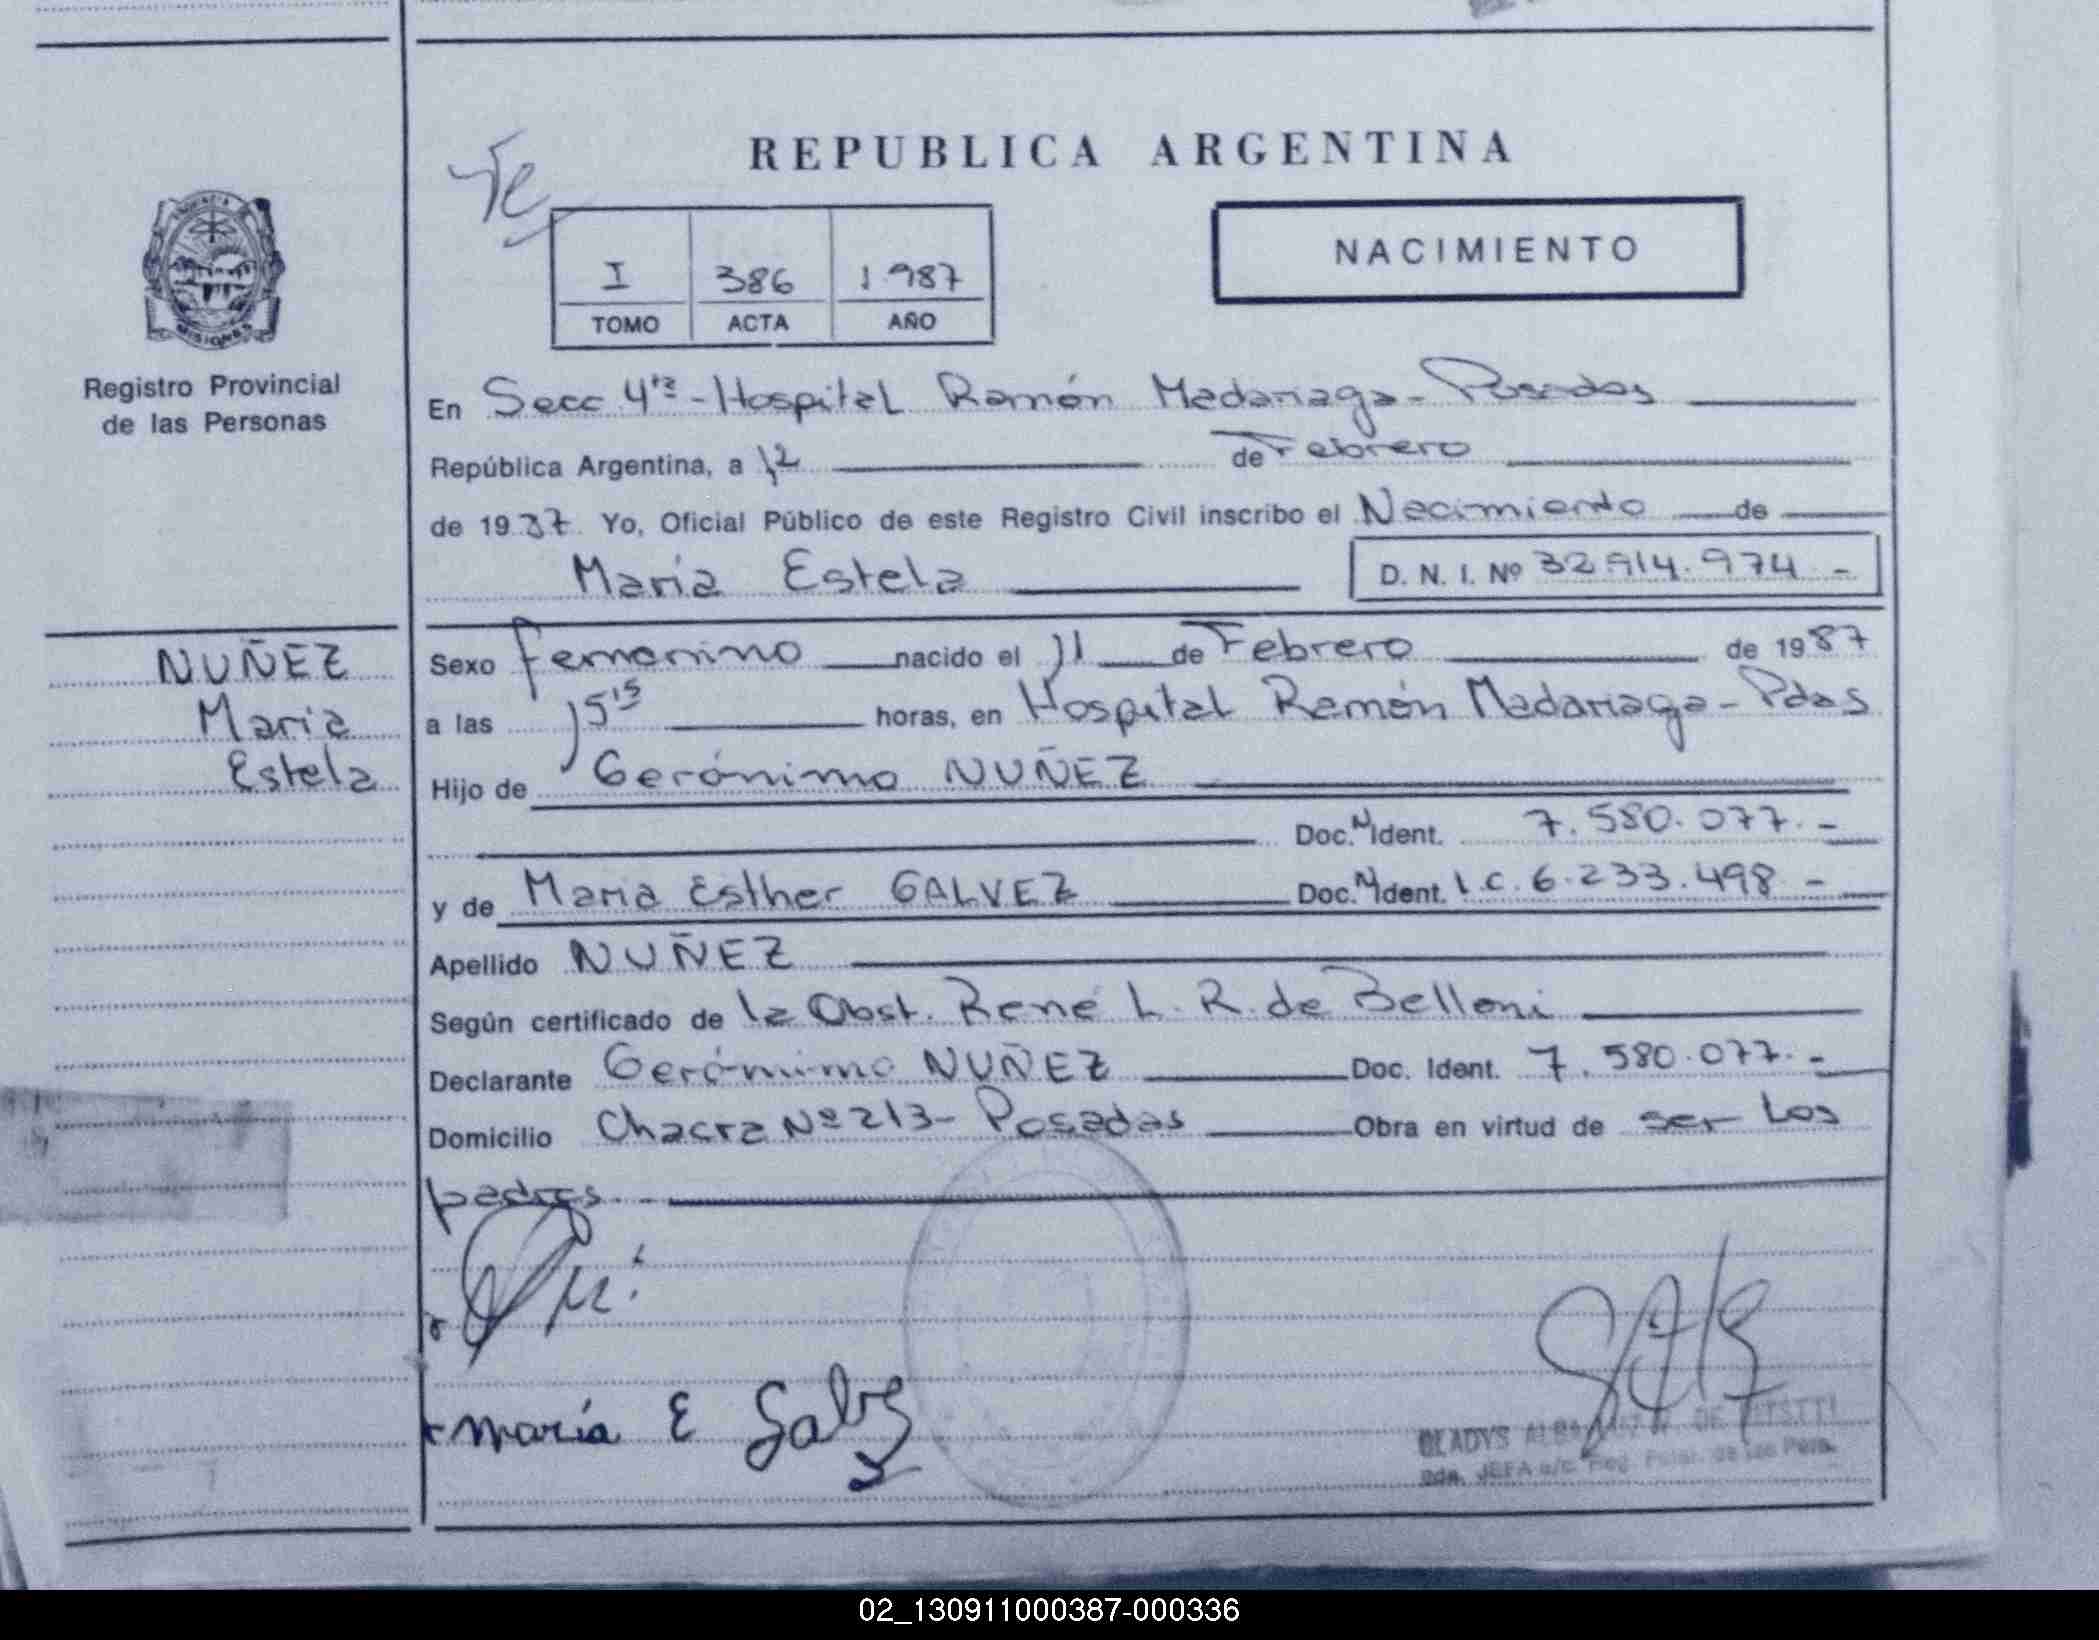 REPUBLICA ARGENTINA
NACIMIENTO
I 386 1987
TOMO ACTA AÑO
MISIONES
Registro Provincial
de las Personas
En Secc 4ta - Hospital Ramón Madariaga - Posadas
República Argentina, a 12 de Febrero
de 1987. Yo, Oficial Público de este Registro Civil inscribo el Nacimiento de
María Estela D. N. I. Nº 32.914.974 -
NUÑEZ
Maria
Estela
Sexo femenino nacido el 11 de Febrero de 1987
a las 15 15 horas, en Hospital Ramón Madariaga - Pdas
Hijo de Gerónimo NUÑEZ
Doc. N Ident. 7.580.077. -
y de Maria Esther GALVEZ Doc. N Ident. L.C. 6.233.498 -
Apellido NUÑEZ
Según certificado de la Obst. René L. R. de Belloni
Declarante Gerónimo NUÑEZ Doc. Ident. 7.580.077. -
Domicilio Chacra Nº 213 - Posadas Obra en virtud de ser los
padres
maría E Galvez
GLADYS ALBA DE
2da. JEFA a/c. Reg. de las Pers.
02_130911000387-000336